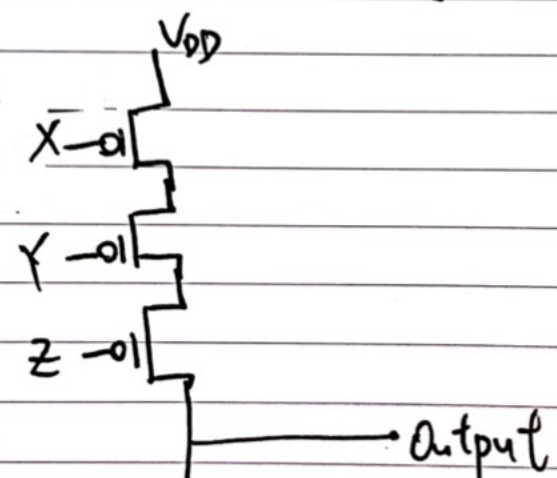 VDD
X
Y
Z
Output